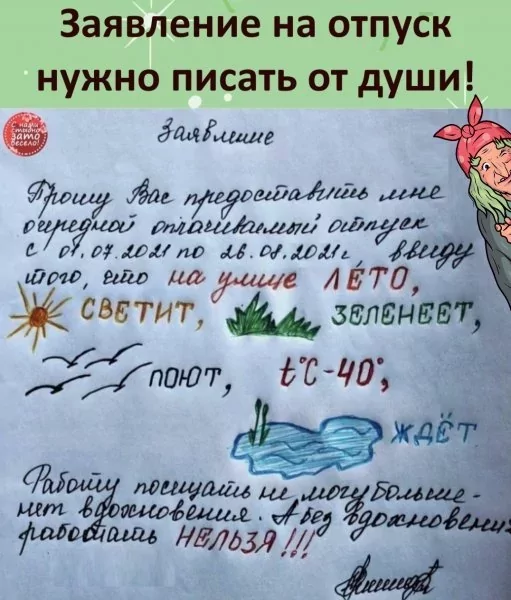 Заявление на отпуск
нужно писать от души!
С нами
стыдно
зато
весело!
Заявление
Прошу Вас предоставить мне
очередной оплачиваемый отпуск
с 01.07.2021 по 26.08.2021г, ввиду
того, что на улице ЛЕТО,
СВЕТИТ, ЗЕЛЕНЕЕТ,
ПОЮТ, t°C-40°,
ЖДЁТ
Работу посещать не могу больше-
нет вдохновения. А без вдохновения
работать НЕЛЬЗЯ!!!